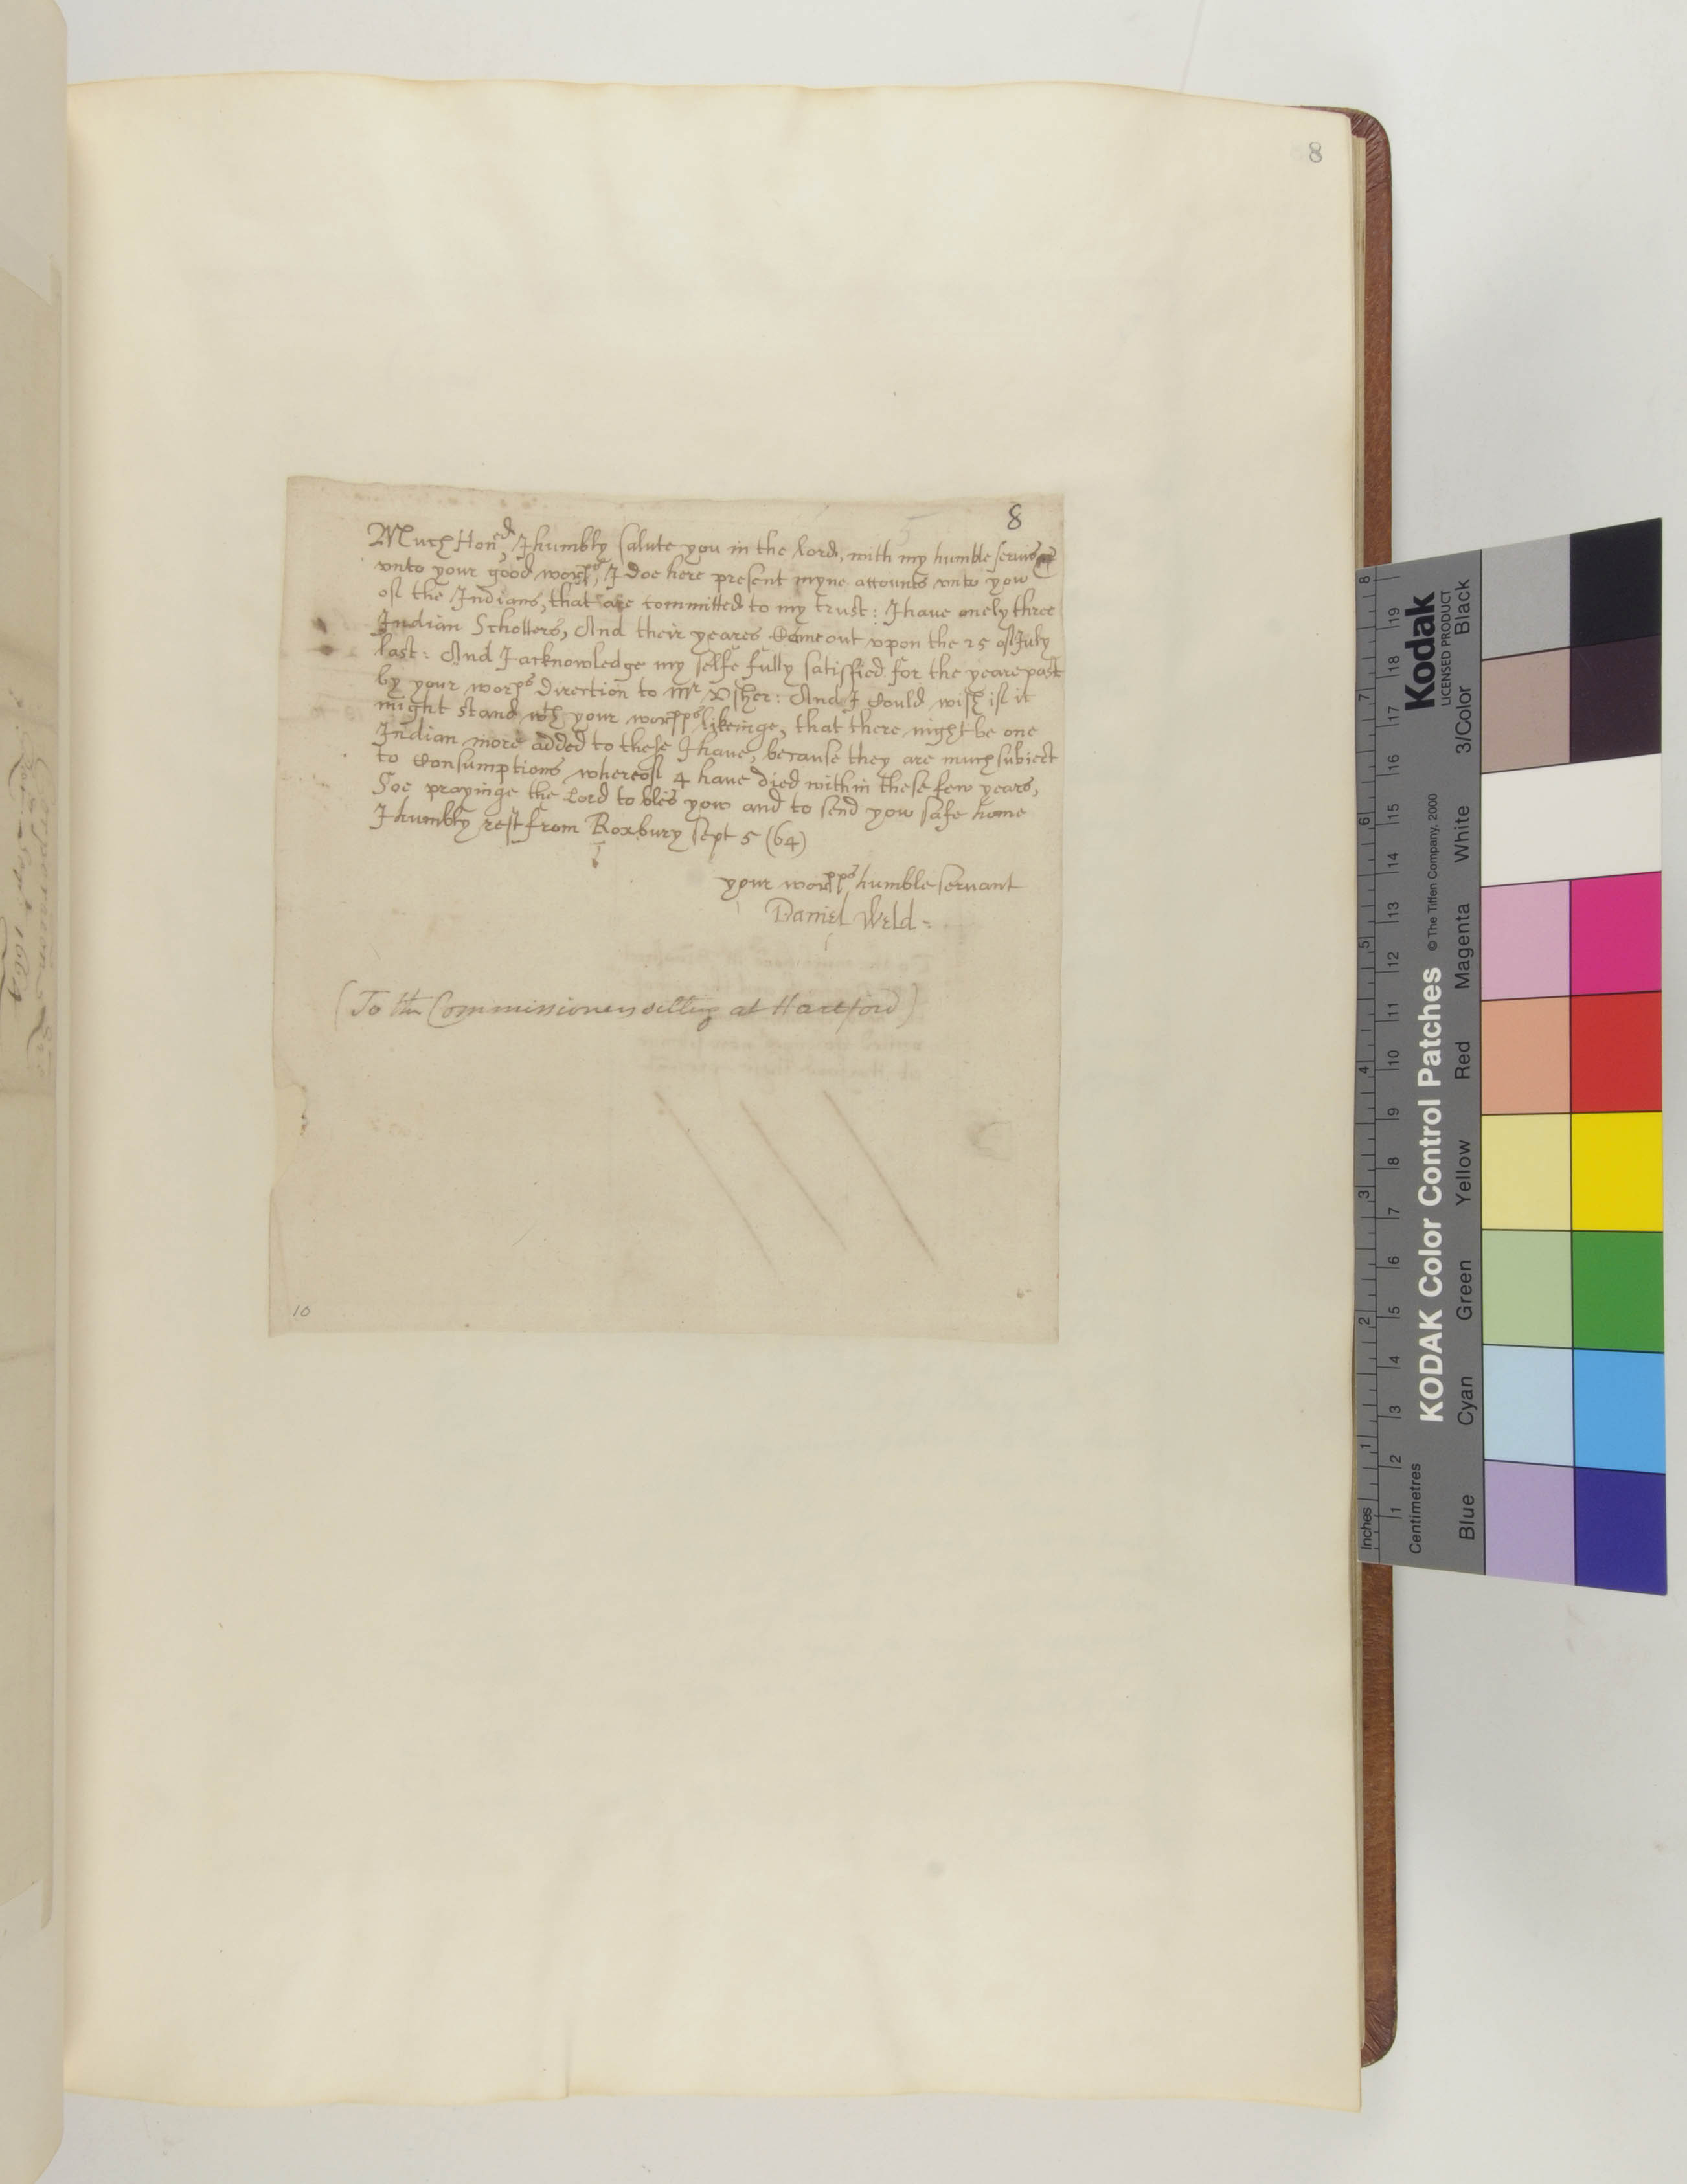 8
8
Much Hon^ed, I humbly salute you in the Lord, with my humble service
vnto your good worp^s, I doe here present myne accounts vnto yow
of the Indians, that are committed to my trust: I have onely three
Indian Schollers, And their yeares Came out vpon the 25 of July
last: And I acknowledge my selfe fully satisfied for the yeare past
by your worp^s Direction to m^r Vsher: And I Could wish if it
might stand w^th your worpp^s likeinge, that there might be one
Indian more added to these I have, because they are much subiect
to Consumptions whereof 4 have died within these few years,
Soe prayinge the Lord to bles yow and to send yow safe home
I humbly rest from Roxbury Sept 5 (64)
your worpp^s humble servant
Daniel Weld
(To the Commissioners sitting at Hartford)
10
Kodak
LICENSED PRODUCT
KODAK Color Control Patches © The Tiffen Company, 2000
Blue Cyan Green Yellow Red Magenta White 3/Color Black
Inches 1 2 3 4 5 6 7 8
Centimetres 1 2 3 4 5 6 7 8 9 10 11 12 13 14 15 16 17 18 19